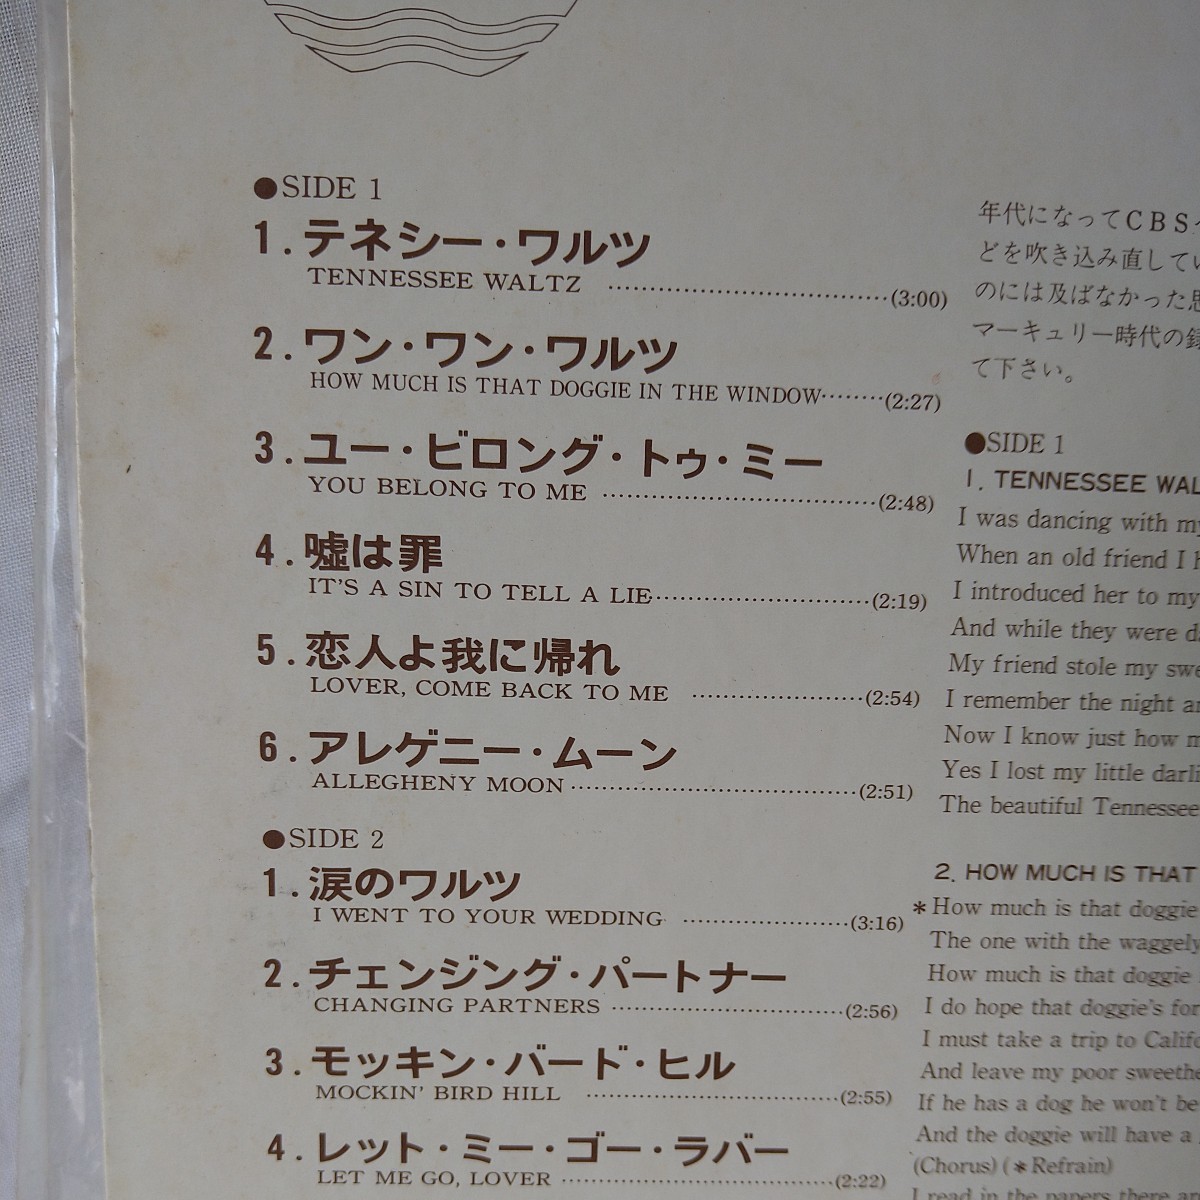 ●SIDE 1
1. テネシー・ワルツ
TENNESSEE WALTZ ……………………………(3:00)
2. ワン・ワン・ワルツ
HOW MUCH IS THAT DOGGIE IN THE WINDOW………(2:27)
3. ユー・ビロング・トゥ・ミー
YOU BELONG TO ME ……………………………(2:48)
4. 嘘は罪
IT'S A SIN TO TELL A LIE………………………(2:19)
5. 恋人よ我に帰れ
LOVER, COME BACK TO ME …………………(2:54)
6. アレゲニー・ムーン
ALLEGHENY MOON……………………………(2:51)
●SIDE 2
1. 涙のワルツ
I WENT TO YOUR WEDDING …………………(3:16)
2. チェンジング・パートナー
CHANGING PARTNERS ………………………(2:56)
3. モッキン・バード・ヒル
MOCKIN' BIRD HILL …………………………(2:55)
4. レット・ミー・ゴー・ラバー
LET ME GO, LOVER ……………………………(2:22)
年代になってCBS
どを吹き込み直してい
のには及ばなかった思
マーキュリー時代の録
て下さい。
●SIDE 1
1. TENNESSEE WAL
I was dancing with my
When an old friend I h
I introduced her to my
And while they were d
My friend stole my swe
I remember the night an
Now I know just how m
Yes I lost my little darli
The beautiful Tennessee
2. HOW MUCH IS THAT
*How much is that doggie
The one with the waggely
How much is that doggie
I do hope that doggie's for
I must take a trip to Califo
And leave my poor sweethe
If he has a dog he won't be
And the doggie will have a
(Chorus) (*Refrain)
I read in the papers there